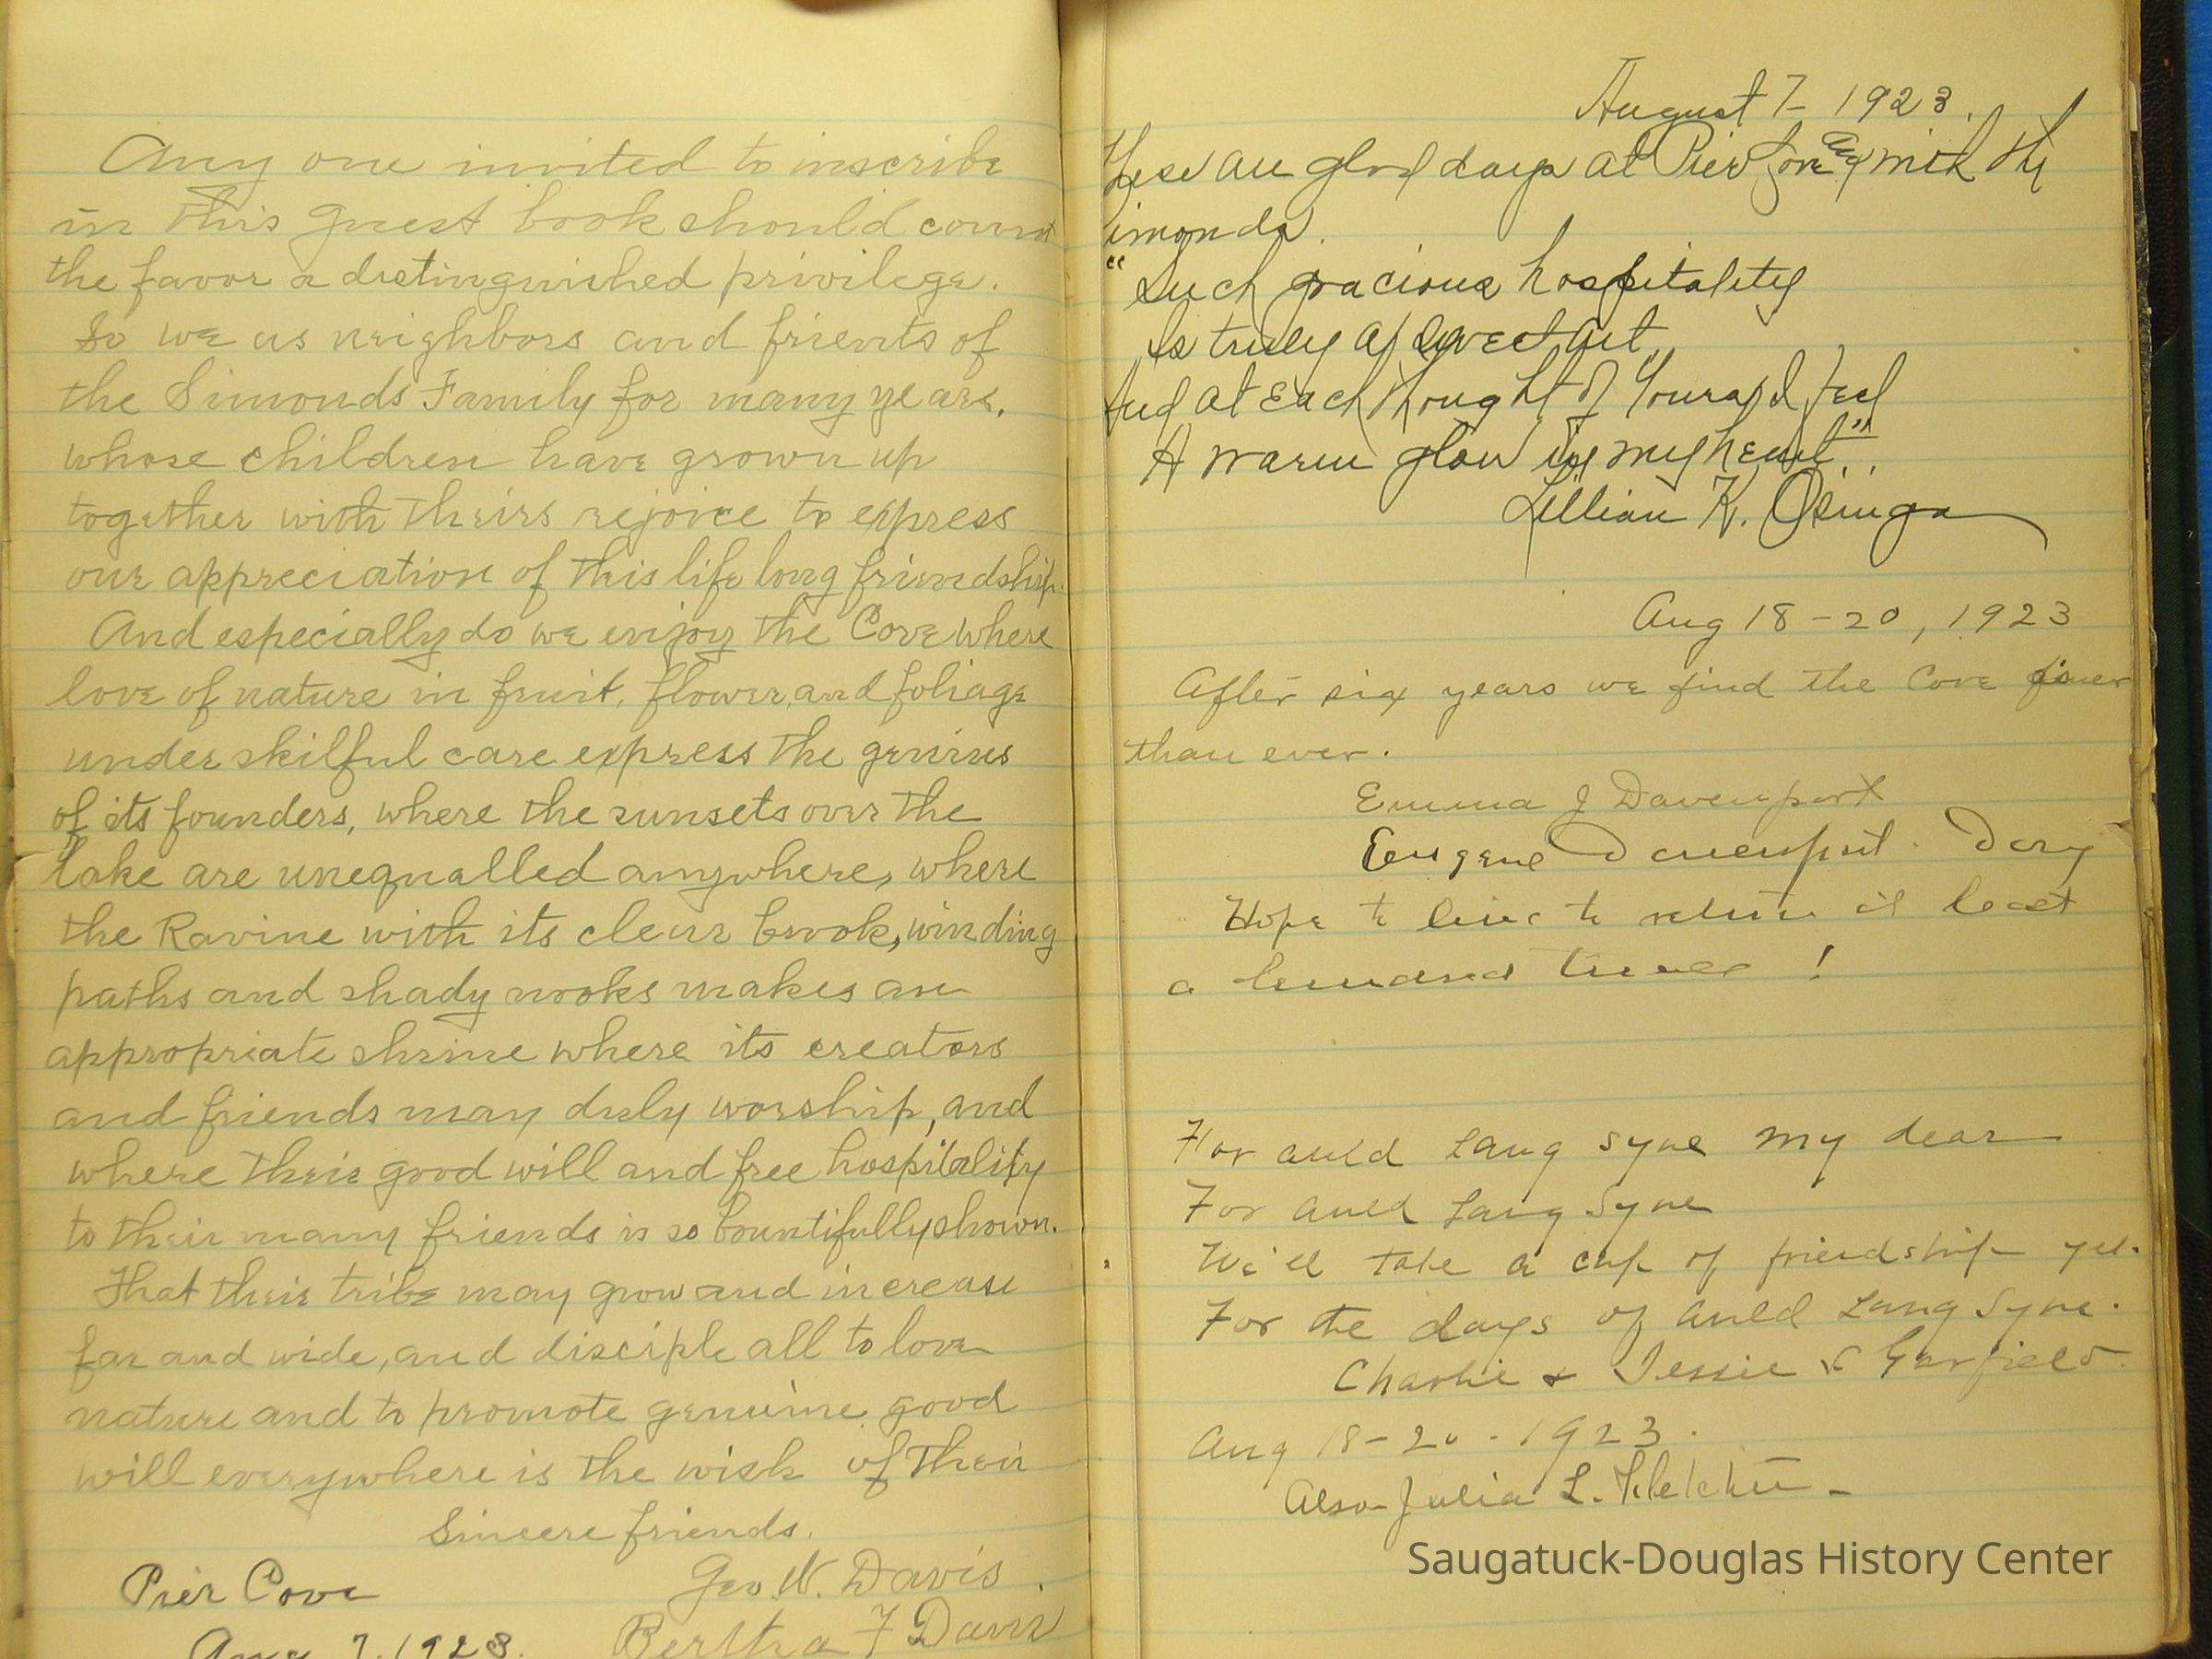 Any one invited to inscribe
in this guest book should count
the favor a distinguished privilege.
So we as neighbors and friends of
the Simonds Family for many years,
whose children have grown up
together with theirs rejoice to express
our appreciation of this life long friendship.
And especially do we enjoy the Cove where
love of nature in fruit, flower, and foliage
under skilful care express the genius
of its founders, where the sunsets over the
lake are unequalled anywhere, where
the Ravine with its clear brook, winding
paths and shady nooks makes an
appropriate shrine where its creators
and friends may duly worship, and
where their good will and free hospitality
to their many friends is so bountifully shown.
That their tribe may grow and increase
far and wide, and disciple all to love
nature and to promote genuine good
will everywhere is the wish of their
Sincere friends.
Pier Cove Geo. W. Davis.
Aug 7, 1923. Bertha F Davis
August 7 - 1923.
These are glad days at Pier Cove with the
imonds.
"Such gracious hospitality
Is truly a sweet art
And at each thought of yours I feel
A warm glow in my heart"
Lillian K. Osinga
Aug 18-20, 1923
After six years we find the Cove finer
than ever.
Emma J Davenport
Eugene Davenport.
Hope to live to return at least
a hundred times!
For auld Lang Syne my dear
For Auld Lang Syne
We'll take a cup of friendship yet.
For the days of Auld Lang Syne.
Charlie & Jessie & Garfield
Aug 18-20-1923.
Also Julia L. Fletcher -
Saugatuck-Douglas History Center